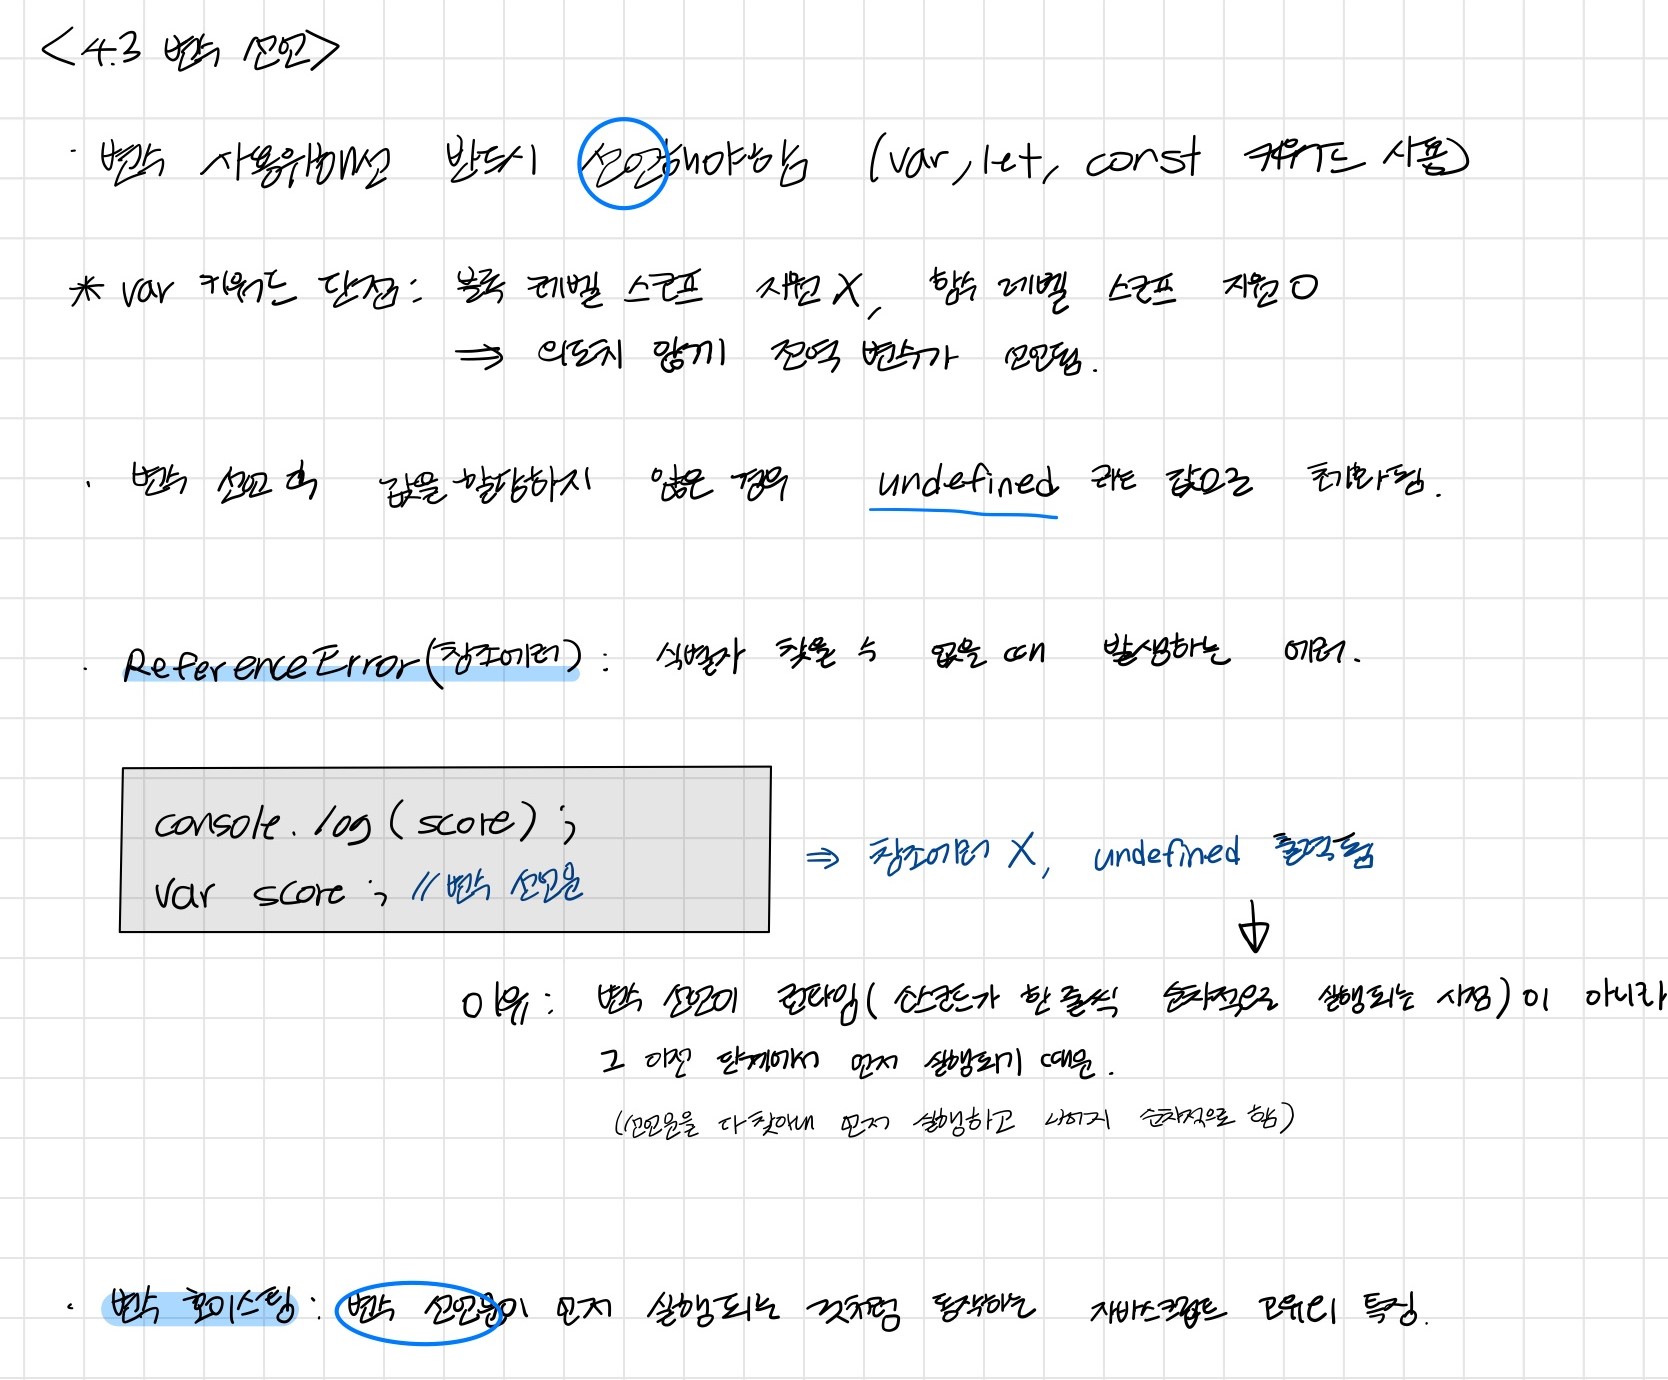 <4.3 변수 선언>
· 변수 사용위해선 반드시 선언해야함 (var, let, const 키워드 사용)
* var 키워드 단점: 블록 레벨 스코프 지원 X, 함수 레벨 스코프 지원 O
⇒ 의도치 않게 전역 변수가 선언됨.
· 변수 선언 후 값을 할당하지 않은 경우 undefined 라는 값으로 초기화됨.
· ReferenceError(참조에러): 식별자 찾을 수 없을 때 발생하는 에러.
console.log(score);
var score; // 변수 선언문
⇒ 참조에러 X, undefined 출력됨
↓
이유: 변수 선언이 런타임(소스코드가 한 줄씩 순차적으로 실행되는 시점)이 아니라
그 이전 단계에서 먼저 실행되기 때문.
(선언문을 다 찾아내 먼저 실행하고 나머지 순차적으로 함)
· 변수 호이스팅: 변수 선언문이 먼저 실행되는 것처럼 동작하는 자바스크립트 고유의 특징.